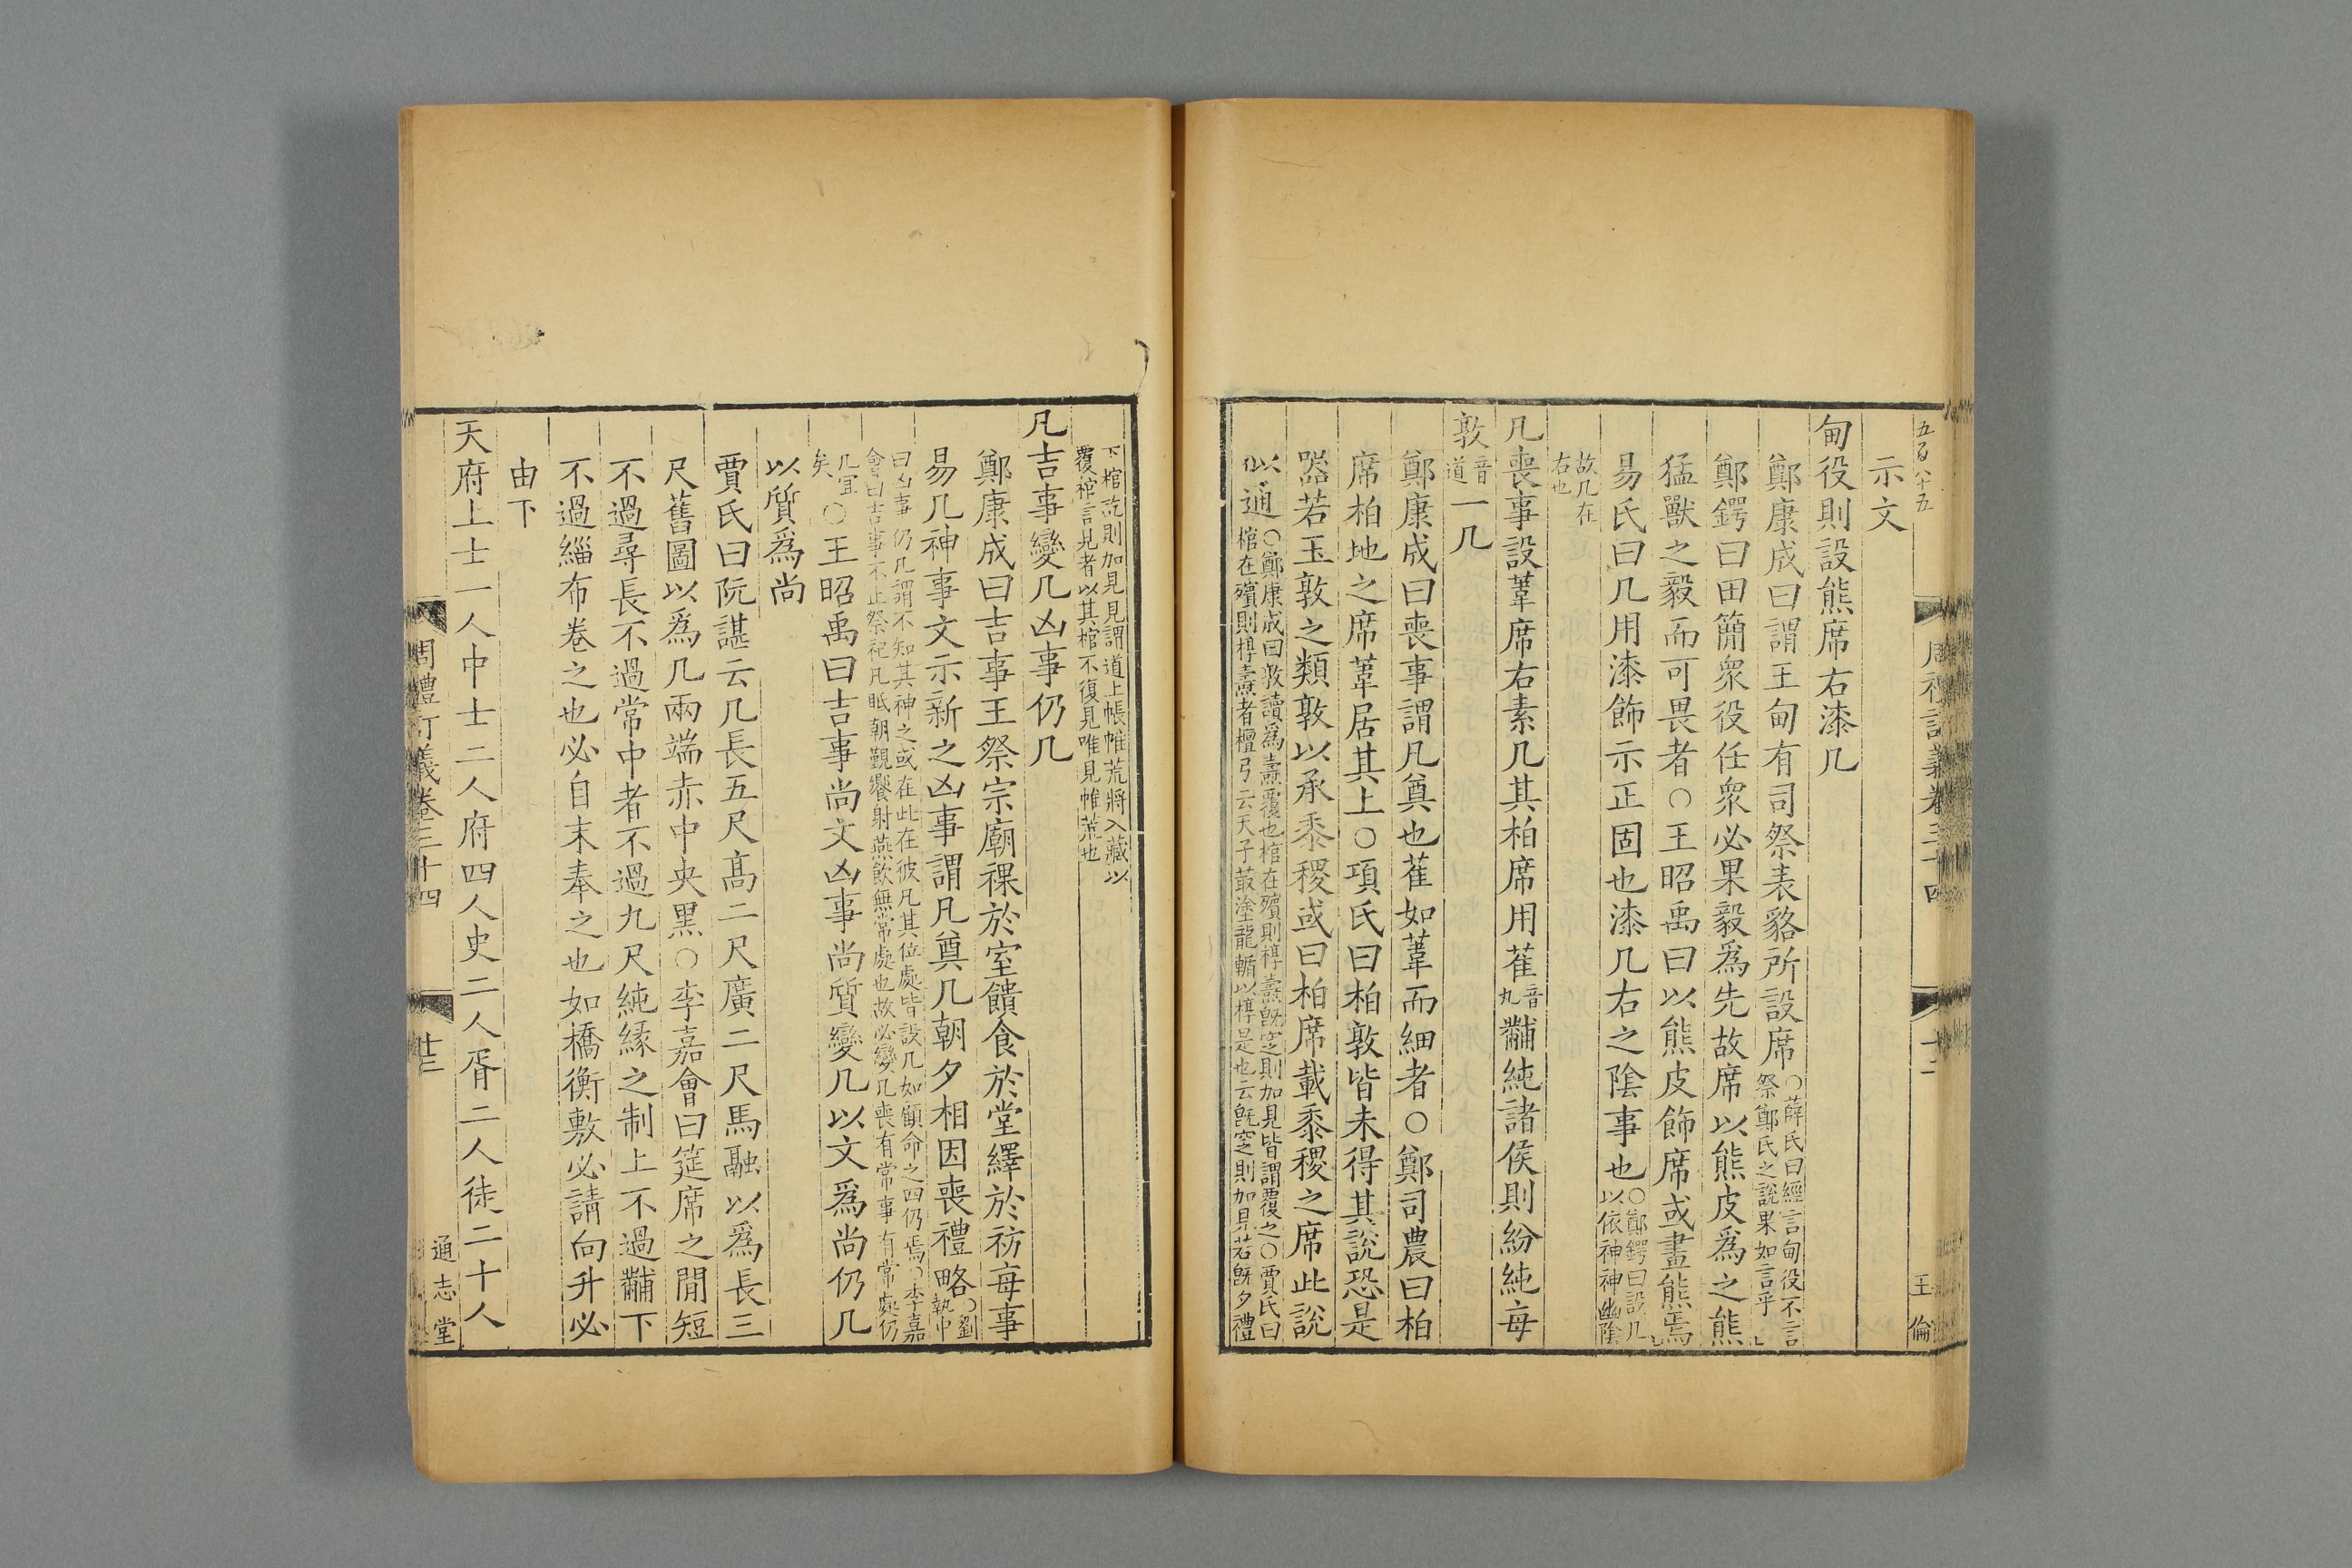 五百八十五
王倫
示文
甸役則設熊席右漆几
鄭康成曰謂王甸有司祭表貉所設席○薛氏曰經言甸役不言祭鄭氏之說果如言乎
鄭鍔曰田簡衆役任衆必果毅爲先故席以熊皮爲之熊
猛獸之毅而可畏者○王昭禹曰以熊皮飾席或畫熊焉
易氏曰几用漆飾示正固也漆几右之陰事也○鄭鍔曰設几以依神神幽陰
故几在右也
凡喪事設葦席右素几其柏席用萑音丸黼純諸侯則紛純每
敦音道一几
鄭康成曰喪事謂凡奠也萑如葦而細者○鄭司農曰柏
席柏地之席葦居其上○項氏曰柏敦皆未得其說恐是
器若玉敦之類敦以承黍稷或曰柏席載黍稷之席此說
似通○鄭康成曰敦讀爲燾覆也棺在殯則椁燾旣窆則加見皆謂覆之○賈氏曰棺在殯則椁燾者檀弓云天子菆塗龍輴以椁是也云旣窆則加見若旣夕禮
下棺訖則加見見謂道上帳帷荒將入藏以覆棺言見者以其棺不復見唯見帷荒也
凡吉事變几凶事仍几
鄭康成曰吉事王祭宗廟祼於室饋食於堂繹於祊每事
易几神事文示新之凶事謂凡奠几朝夕相因喪禮略○劉執中
曰凶事仍几謂不知其神之或在此在彼凡其位處皆設几如顧命之四仍焉○李嘉會曰吉事不止祭祀凡眡朝覲饗射燕飲無常處也故必變几喪有常事有常處仍
几宜矣○王昭禹曰吉事尚文凶事尚質變几以文爲尚仍几
以質爲尚
賈氏曰阮諶云几長五尺高二尺廣二尺馬融以爲長三
尺舊圖以爲几兩端赤中央黑○李嘉會曰筵席之閒短
不過尋長不過常中者不過九尺純緣之制上不過黼下
不過緇布卷之也必自末奉之也如橋衡敷必請向升必
由下
天府上士一人中士二人府四人史二人胥二人徒二十人
周禮訂義卷三十四
通志堂